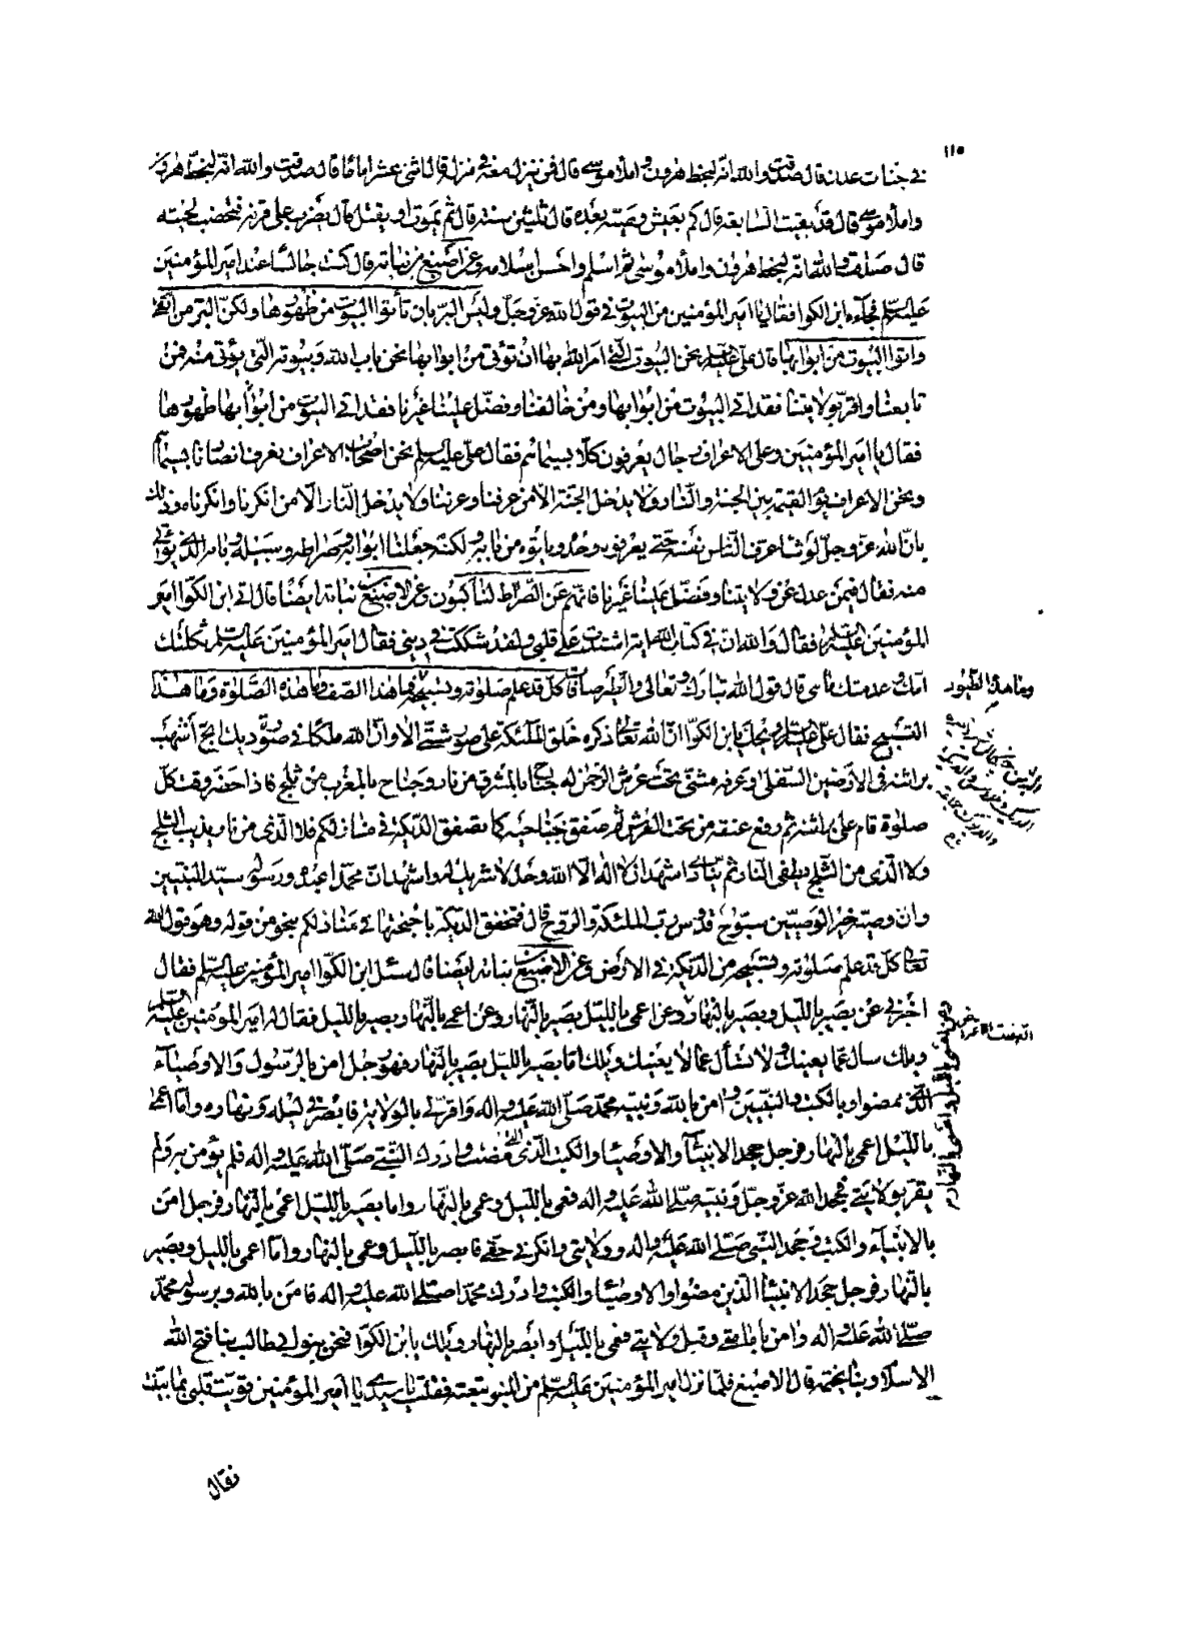 ١١٥
في جنات عدن قال صدقت والله انه لبخط هرون واملاء موسى قال فمن ينزل معه في منزله قال اثنى عشر اماما قال صدقت والله انه لبخط هرون
واملاء موسى قال قد بقيت السابعة قال كم يعيش وصيه بعده قال ثلثين سنة قال ثم يموت او يقتل قال يضرب على قرنه فتخضب لحيته
قال صدقت والله انه لبخط هرون واملاء موسى ثم اسلم واحسن اسلامه وعن اصبغ بن نباتة قال كنت جالسا عند امير المؤمنين
عليه السلم فجاءه ابن الكوا فقال يا امير المؤمنين من البيوت في قول الله عز وجل وليس البر بان تأتوا البيوت من ظهورها ولكن البر من اتقى
واتوا البيوت من ابوابها قال علي عليه السلم نحن البيوت التي امر الله بها ان تؤتى من ابوابها نحن باب الله وبيوته التي يؤتى منه فمن
تابعنا واقر بولايتنا فقد اتى البيوت من ابوابها ومن خالفنا وفضل علينا غيرنا فقد اتى البيوت من ظهورها
فقال يا امير المؤمنين وعلى الاعراف رجال يعرفون كلا بسيماهم فقال علي عليه السلم نحن اصحاب الاعراف نعرف انصارنا بسيماهم
ونحن الاعراف يوم القيمة بين الجنة والنار ولا يدخل الجنة الا من عرفنا وعرفناه ولا يدخل النار الا من انكرنا وانكرناه وذلك
بان الله عز وجل لو شاء عرف الناس نفسه حتى يعرفوه وحده ويأتوه من بابه ولكنه جعلنا ابوابه وصراطه وسبيله وبابه الذي يؤتى
منه فقال فيمن عدل عن ولايتنا وفضل علينا غيرنا فانهم عن الصراط لناكبون وعن الاصبغ بن نباتة ايضا قال اتى ابن الكوا امير
المؤمنين عليه السلم فقال والله ان في كتاب الله اية اشتدت على قلبي ولقد شككت في ديني فقال امير المؤمنين عليه السلم ثكلتك
امك وعدمتك ما هي قال قول الله تبارك وتعالى والطير صافات كل قد علم صلوته وتسبيحه فما هذا الصف وما هذه الصلوة وما هذا
التسبيح فقال علي عليه السلم ويحك يا ابن الكوا ان الله تعالى ذكره خلق الملئكة على صور شتى الا وان لله ملكا في صورة ديك ابح اشهب
براثنه في الارضين السفلى وعرفه مثنى تحت عرش الرحمن له جناح بالمشرق من نار وجناح بالمغرب من ثلج فاذا حضر وقت كل
صلوة قام على براثنه ثم رفع عنقه من تحت العرش ثم صفق جناحيه كما تصفق الديكة في منازلكم فلا الذي من نار يذيب الثلج
ولا الذي من الثلج يطفي النار ثم ينادي اشهد ان لا اله الا الله وحده لا شريك له واشهد ان محمدا عبده ورسوله سيد النبيين
وان وصيه خير الوصيين سبوح قدوس رب الملئكة والروح قال فتخفق الديكة باجنحتها في منازلكم بنحو من قوله وهو قول الله
تعالى كل قد علم صلوته وتسبيحه من الديكة في الارض وعن الاصبغ بن نباتة ايضا قال سئل ابن الكوا امير المؤمنين عليه السلم فقال
اخبرني عن بصير بالليل وبصير بالنهار وعن اعمى بالليل بصير بالنهار وعن اعمى بالنهار وبصير بالليل فقال له امير المؤمنين عليه السلم
ويلك سل عما يعنيك ولا تسأل عما لا يعنيك ويلك اما بصير بالليل بصير بالنهار فهو رجل امن بالرسول والاوصياء
الذين مضوا وبالكتب والنبيين وامن بالله ونبيه محمد صلى الله عليه واله واقر لي بالولاية فابصر في ليله ونهاره واما اعمى
بالليل اعمى بالنهار فرجل جحد الانبياء والاوصياء والكتب التي مضت وادرك النبي صلى الله عليه واله فلم يؤمن به ولم
يقر بولايتي فجحد الله عز وجل ونبيه صلى الله عليه واله فعمي بالليل وعمي بالنهار واما بصير بالليل اعمى بالنهار فرجل امن
بالانبياء والكتب وجحد النبي صلى الله عليه واله وولايتي وانكرني حقي فابصر بالليل وعمي بالنهار واما اعمى بالليل وبصير
بالنهار فرجل جحد الانبياء الذين مضوا والاوصياء والكتب وادرك محمدا صلى الله عليه واله فامن بالله وبرسوله محمد
صلى الله عليه واله وامن بامامتي وقبل ولايتي فعمي بالليل وابصر بالنهار ويلك يا ابن الكوا فنحن بنو ابي طالب بنا فتح الله
الاسلام وبنا يختمه قال الاصبغ فلما نزل امير المؤمنين عليه السلم من المنبر تبعته فقلت يا سيدي يا امير المؤمنين قويت قلبي بما بينت
وما هذا الطيور
وعن اعمى بالليل اعمى بالنهار
فقال